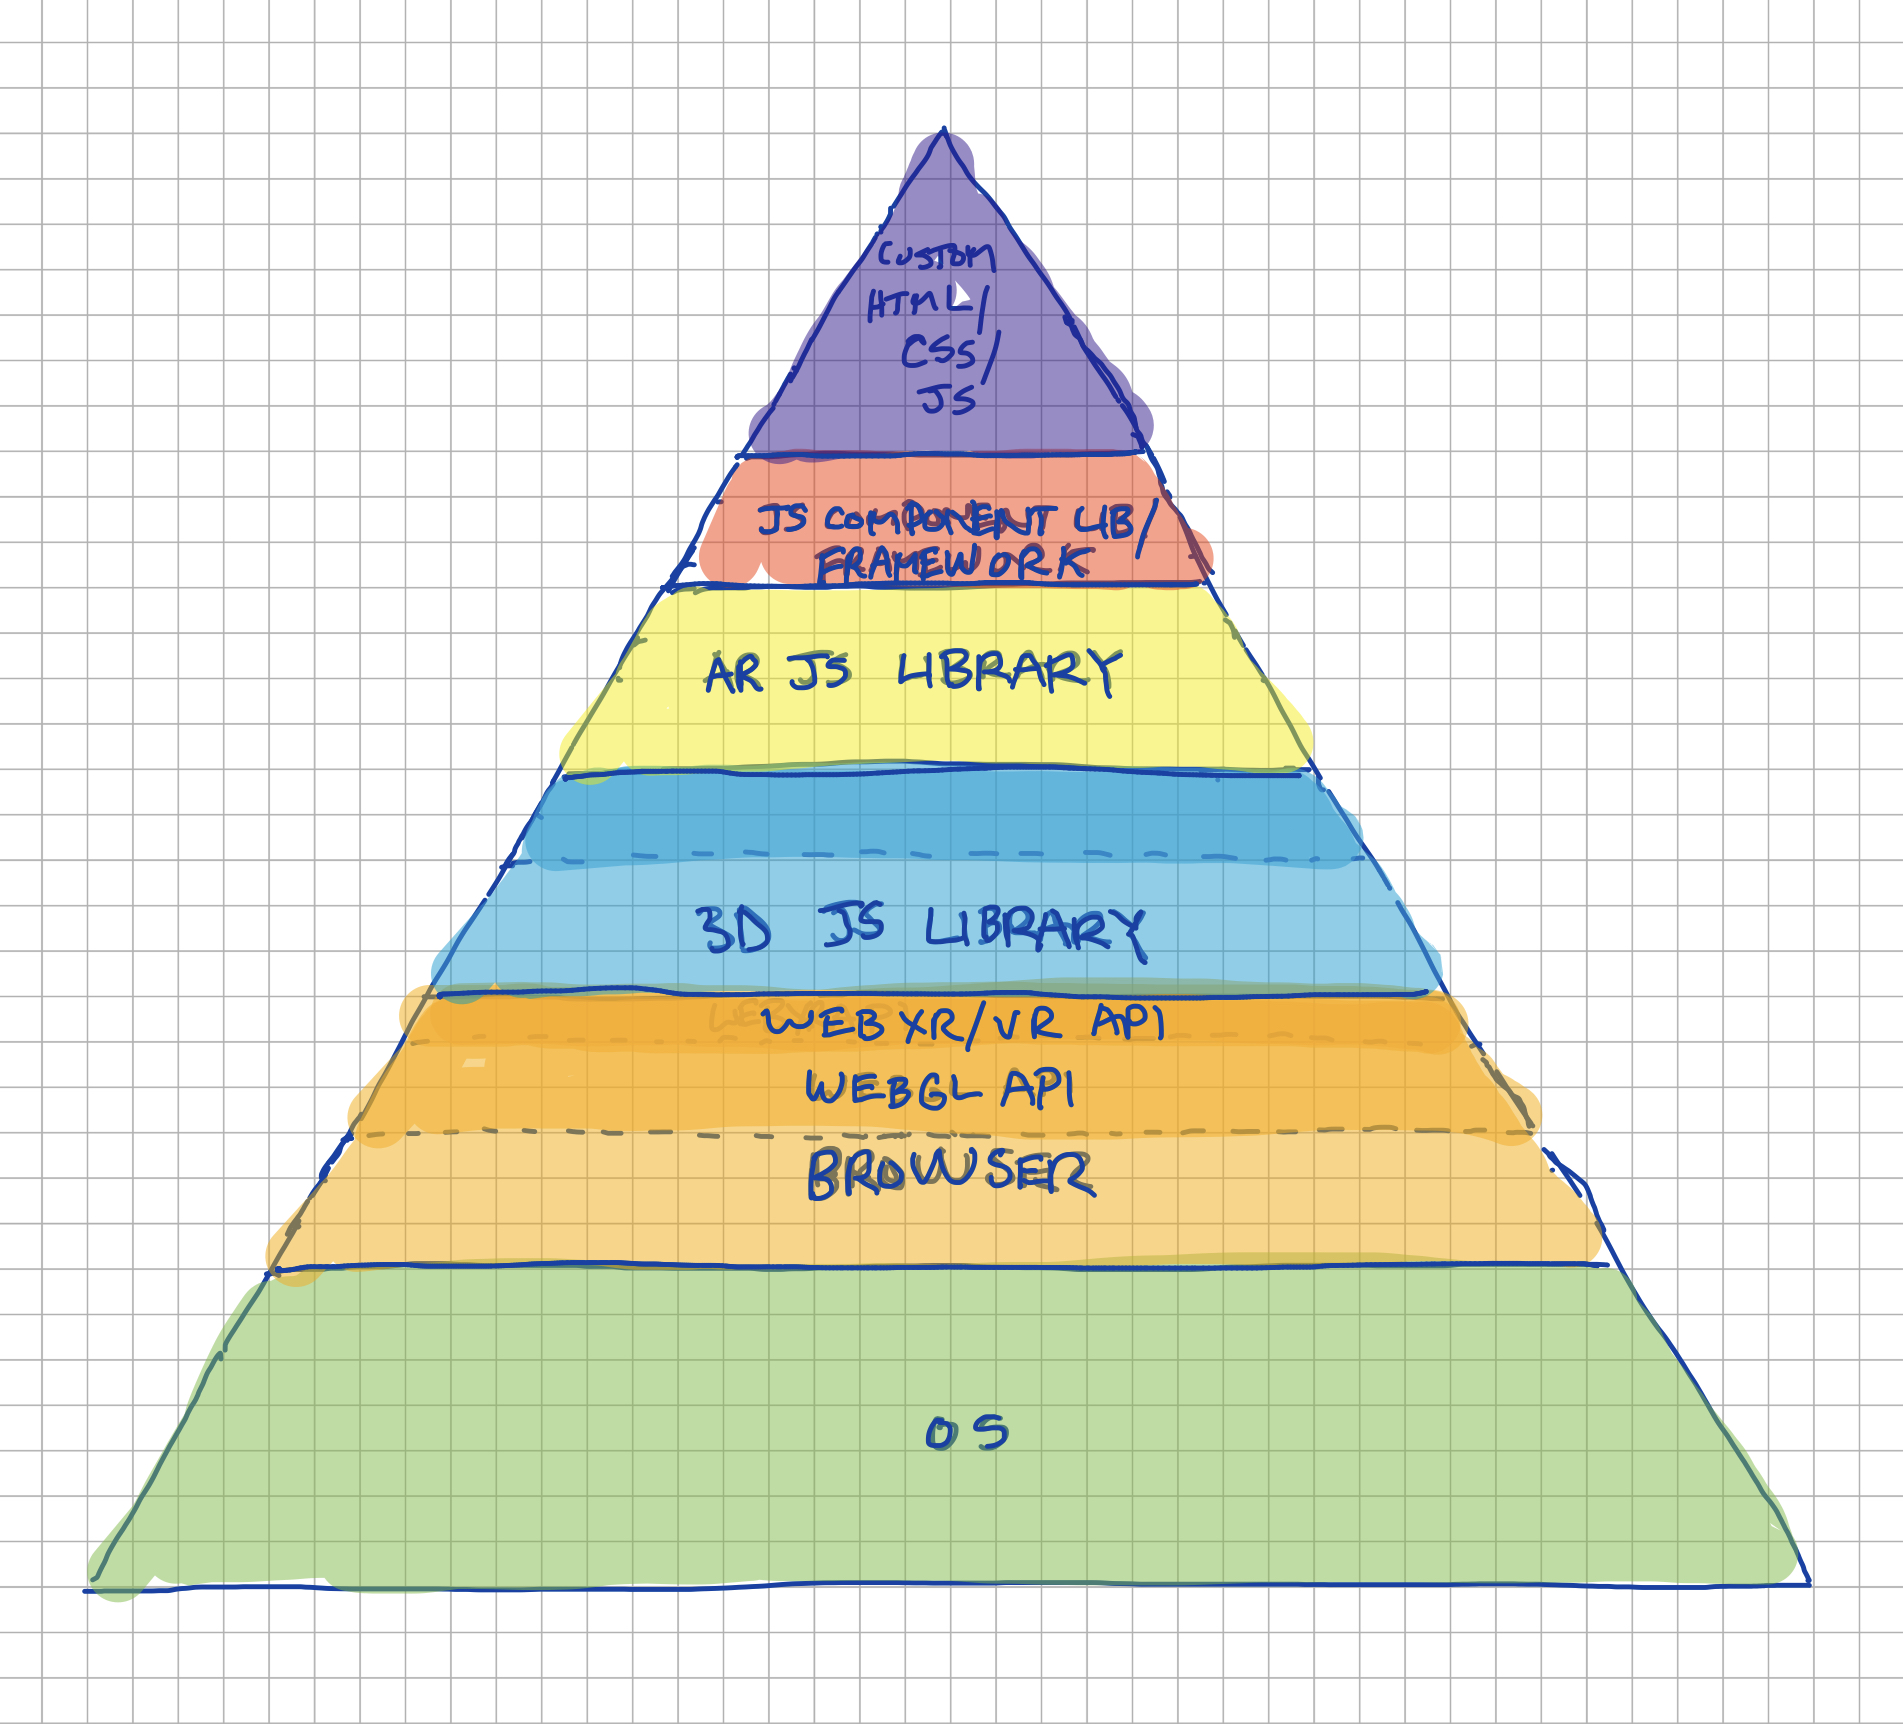 CUSTOM
HTML/
CSS/
JS
JS COMPONENT LIB/
FRAMEWORK
AR JS LIBRARY
3D JS LIBRARY
WEB XR/VR API
WEBGL API
BROWSER
OS